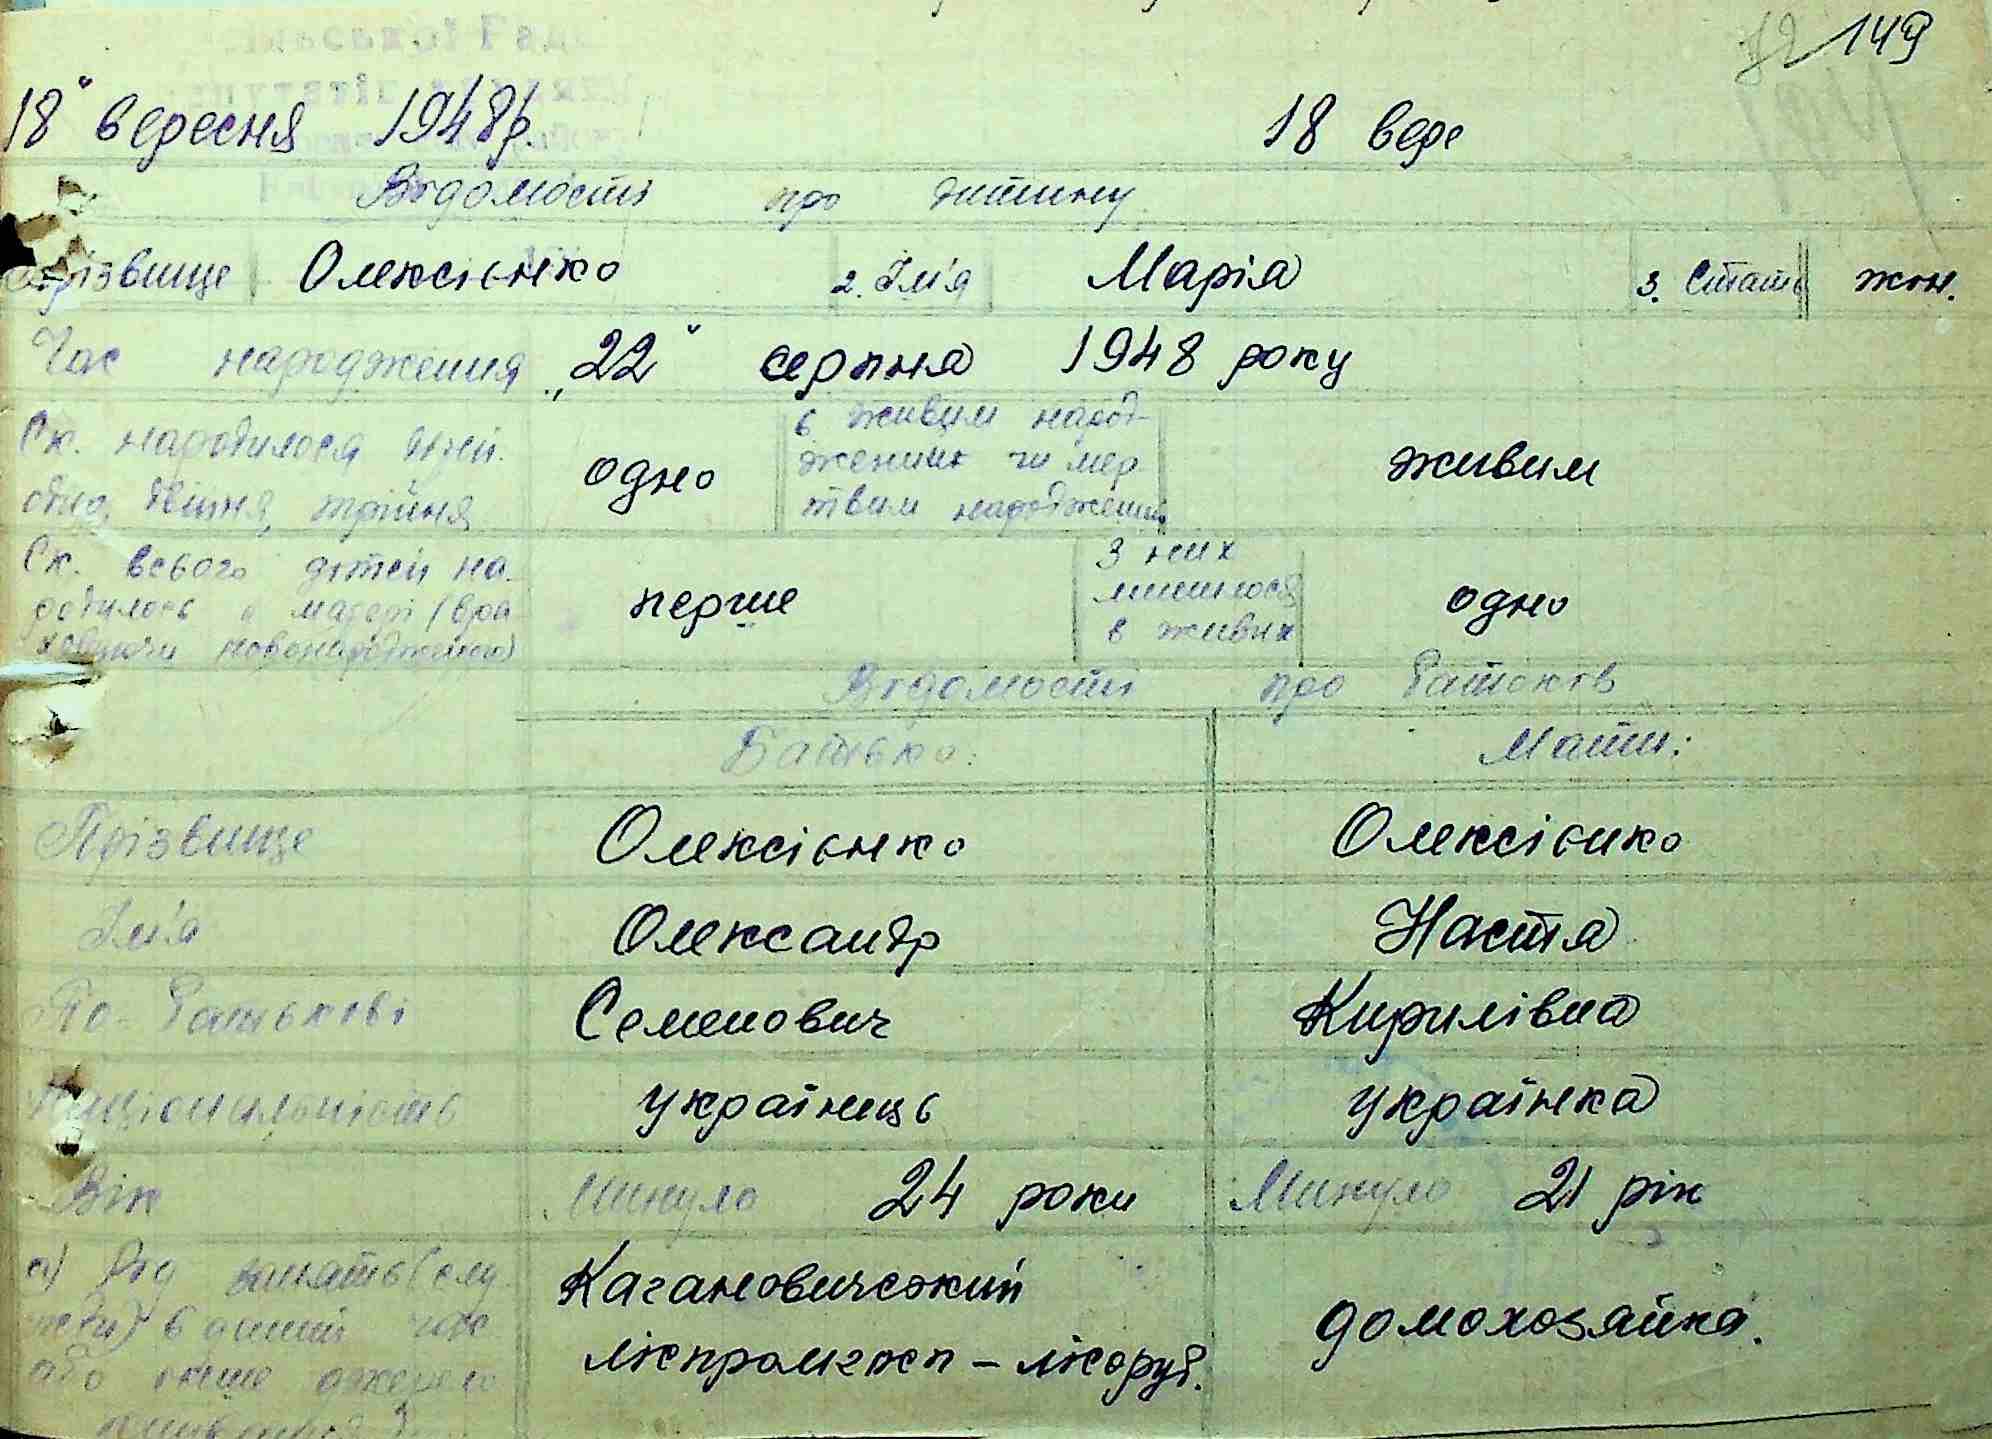 149
18" вересня 1948р. 18 вере
Відомості про дитину
Прізвище Олексієнко 2. Ім'я Марія 3. Стать жін.
Час народження „22" серпня 1948 року
Ск. народилося дітей. одно, двійня, трійня
одно
в живим народ-
женим чи мер
твим народженим
живим
Ск. всього дітей на-
родилось у матері (вра
ховуючи новонародженого)
перше
З них
лишилося
в живих
одно
Відомості про батьків
Батько: Мати:
Прізвище Олексієнко Олексієнко
Ім'я Олександр Настя
По-батькові Семенович Кирилівна
Національність українець українка
Вік Минуло 24 роки Минуло 21 рік
а) Рід занять (слу
жби) в даний час
або інше джерело
Кагановичський
ліспромгосп – лісоруб.
домохозяйка.